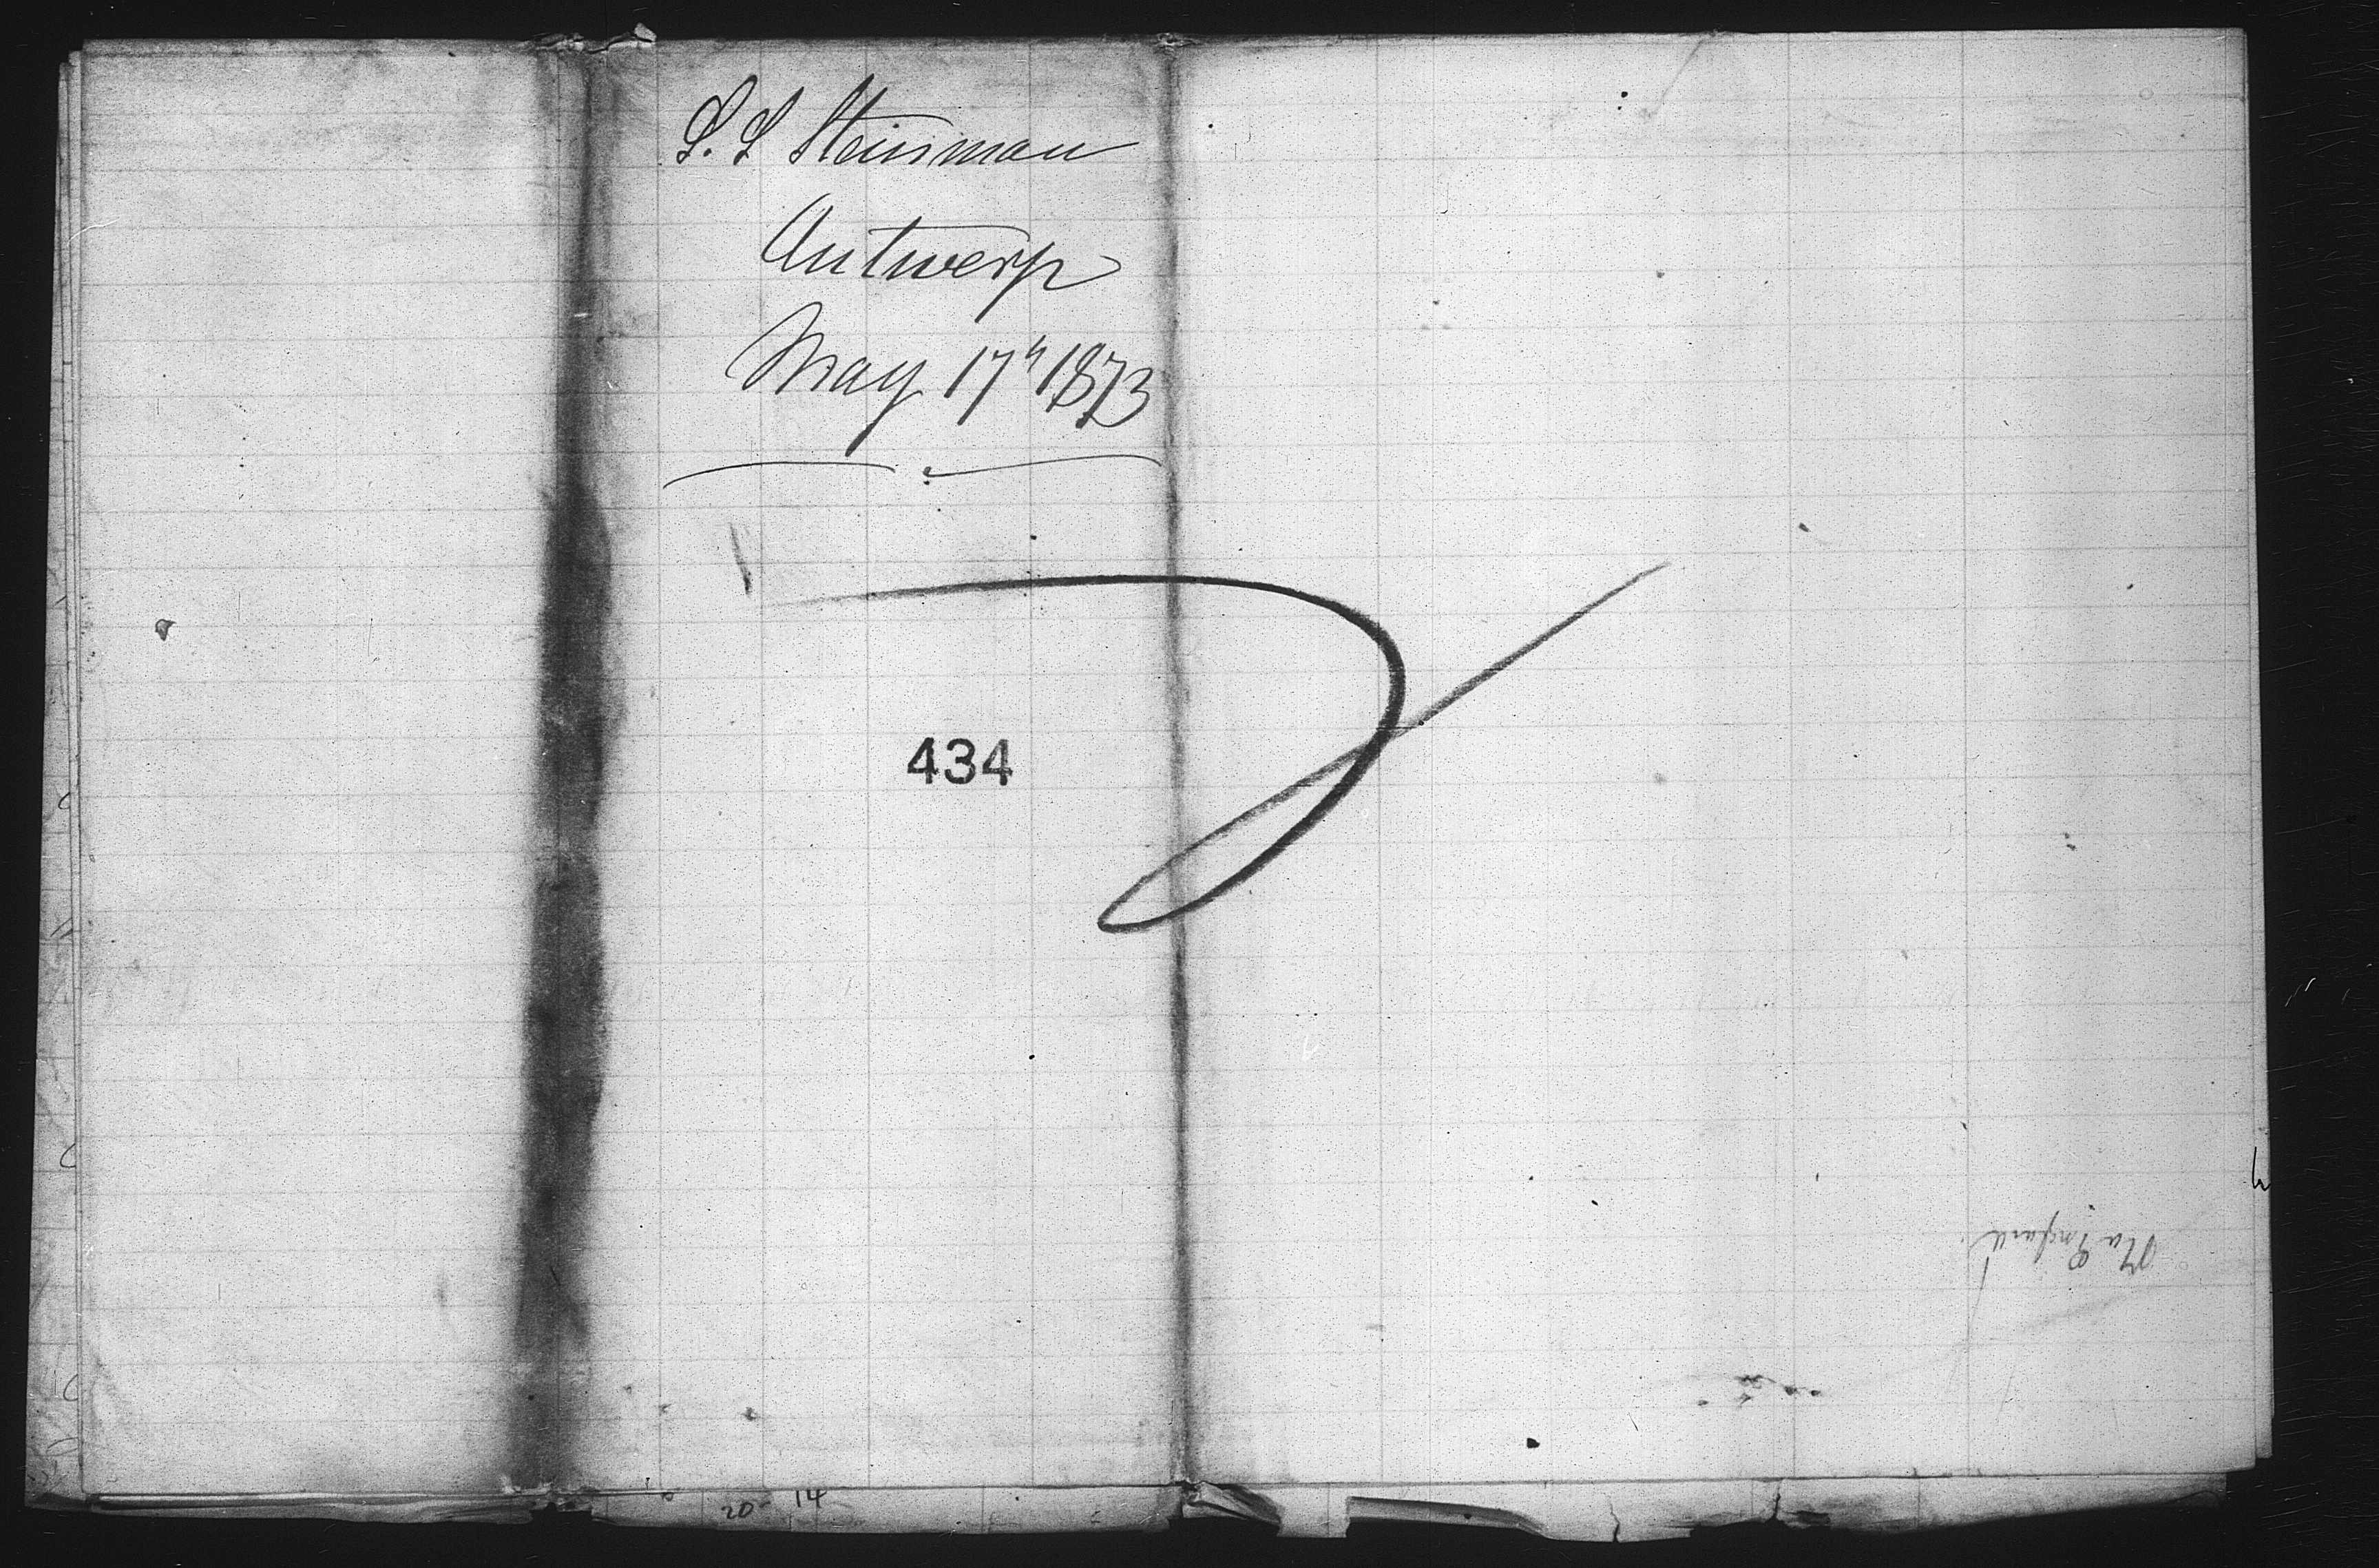 S. S Steinman
Antwerp
May 17th 1873
434
20 14